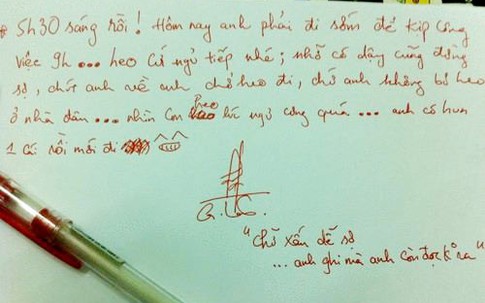 * 5h30 sáng rồi! Hôm nay anh phải đi sớm để kịp công
việc 9h ... heo cứ ngủ tiếp nhé; nhỡ có dậy cũng đừng
sợ, chút anh về anh chở heo đi, chứ anh không bỏ heo
ở nhà đâu ... nhìn con heo lúc ngủ cưng quá ... anh có hun
1 cái rồi mới đi
"Chữ xấu dễ sợ
... anh ghi mà anh còn đọc k° ra"